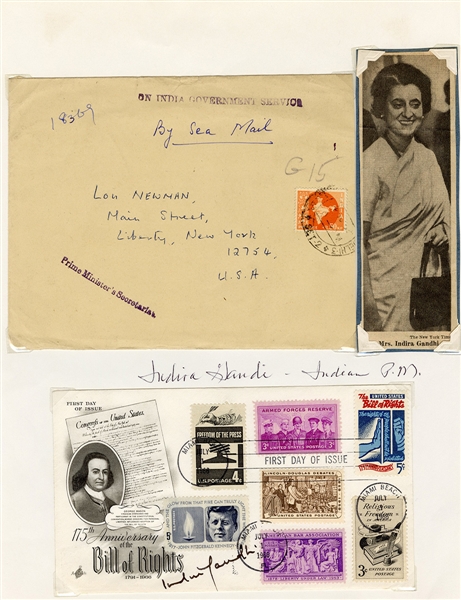 ON INDIA GOVERNMENT SERVICE
18369
By Sea Mail
G15
Lou NEWMAN,
Main Street,
Liberty, New York
12754,
U.S.A.
Prime Minister's Secretariat
The New York Times
Mrs. Indira Gandhi
Indira Gandi - Indian P.M.
FIRST DAY
OF ISSUE
Congress of the United States
175th Anniversary
of the
Bill of Rights
1791-1966
FREEDOM OF THE PRESS
U.S. POSTAGE 4¢
ARMED FORCES RESERVE
3¢ UNITED STATES POSTAGE 3¢
UNITED STATES
The Bill of Rights
5¢
FIRST DAY OF ISSUE
LINCOLN-DOUGLAS DEBATES
UNITED STATES POSTAGE
MIAMI BEACH
JULY
Religious Freedom
in America
3¢
GLOW FROM THAT FIRE CAN TRULY
JOHN FITZGERALD KENNEDY
AMERICAN BAR ASSOCIATION
Indira Gandhi